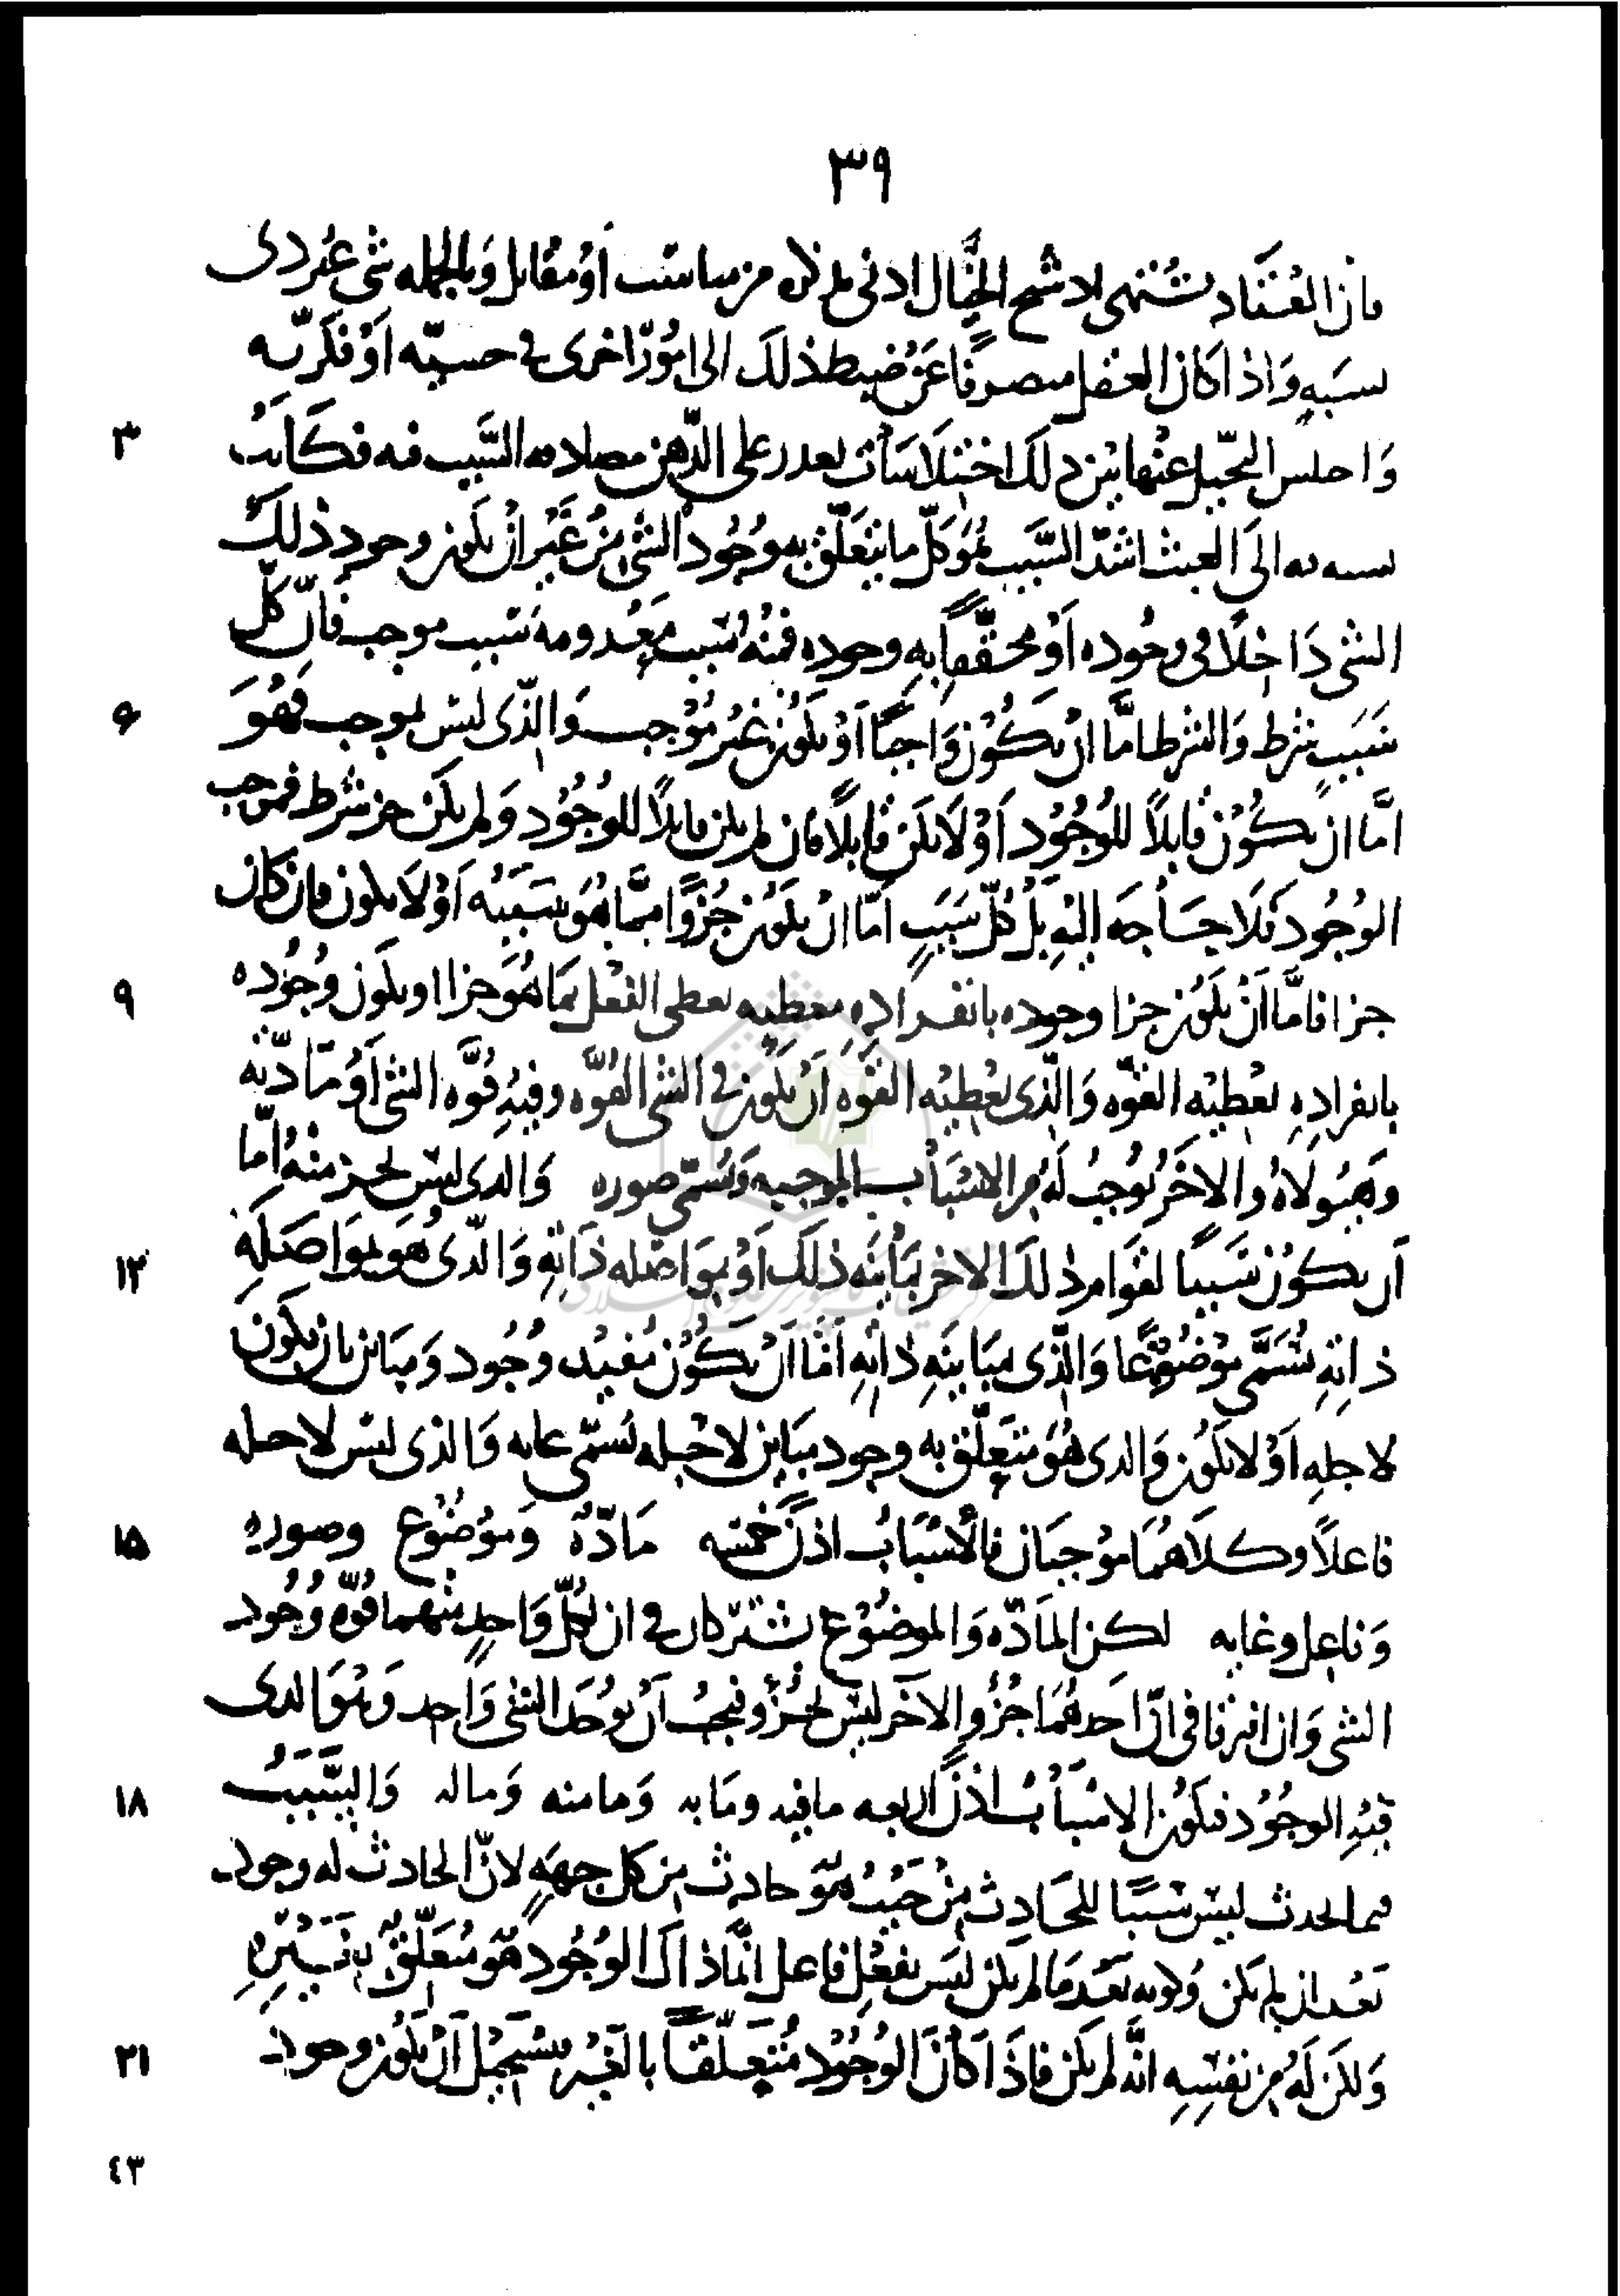 ٣٩
فان المعتاد تشتهى لا شح الخيال ادنى ملائم من مناسب اَوْ مقابل وَبالجمله شى غير ذى
سببه وَاذا كان العقل منصرفًا عَنْ ضبط ذلكَ الى امُوْر اُخرى فى حسيّه اَوْ فكريّه
٣
وَاختلس التخيّل عنها بين ذلكَ اختلاسَات يعذر على الذّهن مصادفه السَّبب فيه فكانت
نسبته الَى العبث اشدّ السَّبب هُوَ كلّ ما يتعَلّق به وُجُود الشى مِنْ غَيْر انْ يكون وجود ذلكَ
الشى دَاخلًا فى وجُوده اَوْ محقّقا بِهِ وجوده فمنْهُ سَبب مُعد ومنه سَبب موجب فانّ كلّ
۶
سَبَبٍ شرط وَالشرط امَّا انْ يكُوْن وَاجبًا اَوْ يكون غيْرُ مُوْجب وَالّذى ليسَ بموجب فَهُوَ
امَّا ان يكُوْن قابلاً للوُجُوْد اَوْ لَا يكن قابلاً فان لم يكن قابلاً للوجُوْد وَلم يكن جزشرط فموجب
الوُجُود فَلَا حَاجَه اِليْهِ بلْ كلّ سَبَبٍ اَمّا انْ يكوْن جُزًوا ممَّا هُوَ سَبَبُه اَوْ لَا يكون فان كان
٩
جزا فامَّا اَنْ يكُوْن جزا وجوده بانفراده معطيه يعطى الفعْل لمَا هُوَ جزا او يكَوْن وجُوْده
بانفراده يُعْطيْه القوّه وَالّذى يُعْطيْه القوّه اَنْ يكون فى الشى القُوَّه وفيْهِ قُوَّه الشى اَوْ مَادّته
وهَيُولَاهُ والاخَرُ يُوجبُ لَهُ من الاسْبَاب الموجبه وَيُسَمّى صوره وَالذى ليْسَ بجز منْهُ امّا
١٢
اَن يكُوْن سَببًا لقوام ذلكَ الاخر بمُبَاينَه ذلكَ اَوْ بموَاصَله ذَاتِهِ وَالّذى هُوَ بموَاصَلَهِ
ذاتِهِ يُسَمَّى مَوْضُوْعًا وَالّذى بمبَاينَهِ ذاتِهِ امَّا اَنْ يكُوْن مُفيْد وُجُود وَمباين بان يكوْن
لاجلِهِ اَوْ لا يكوُن وَالذى هُوَ متَعَلّق به وجود مبَاين لاجله يُسَمّى غايه وَالذى ليْسَ لاجله
١۵
فاعلاً وكلَاهُمَا مُوْجبَان فالأسْبَابُ اذنْ خمْسَه مَادّهْ وَمَوْضُوْع وصوره
وَفاعل وغايه لكن المَادّه وَالموضُوْع يشترَكان فى ان لكلّ وَاحِدٍ منْهما قُوّه وُجُود
الشى وَان افترقا فى انّ اَحدهُمَا جُزْو والاخَر ليْسَ بجُزْو فيجبُ اَنْ يوخَذ الشى وَاحِد وَهُوَ الذى
١٨
فيْهِ الوجُوْد فيكُوْن الاسْبَابُ اذنْ اربعه ما فيه ومَا به وَما منه وَما له وَالسَّبَبُ
فيما يحدث ليسَ سَببًا للحَادِثِ مِنْ حَيْثُ هُوَ حادث من كل جهَهٍ لانّ الحادث له وجود
بَعْد ان لم يكن وَكونه بَعْد مَا لم يكن ليسَ بفعْل فاعل انّما ذاكَ الوُجُود هُوَ مُتعَلّقٌ بِغَيْرِهِ
٢١
وَلكن لَهُ من نفسِه انَّه لم يكن فاذَا كانَ الوُجُوْد مُتَعلّقًا بالغَيْر يسْتحيْل اَنْ يكُوْن وجود
٤٣